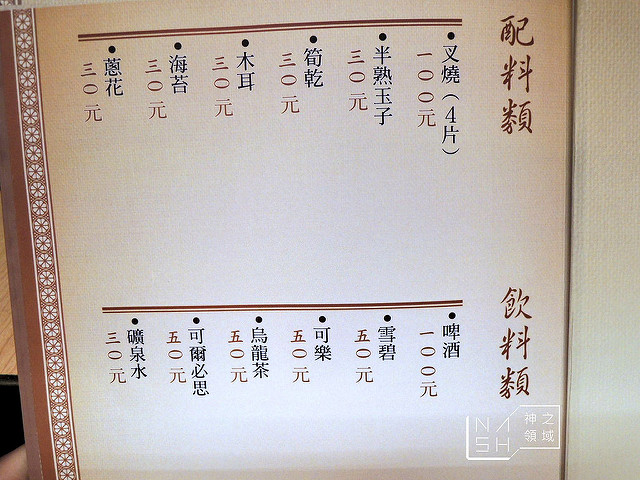 配料類
叉燒（4片）
一〇〇元
半熟玉子
三〇元
筍乾
三〇元
木耳
三〇元
海苔
三〇元
蔥花
三〇元
飲料類
啤酒
一〇〇元
雪碧
五〇元
可樂
五〇元
烏龍茶
五〇元
可爾必思
五〇元
礦泉水
三〇元
NASH
神之領域